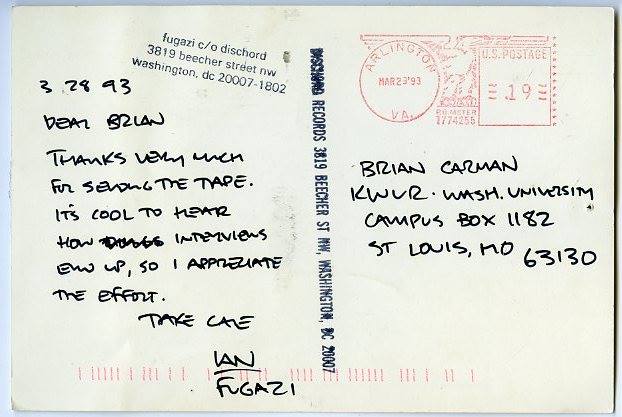 fugazi c/o dischord
3819 beecher street nw
washington, dc 20007-1802
3 28 93
DEAR BRIAN
THANKS VERY MUCH
FOR SENDING THE TAPE.
IT'S COOL TO HEAR
HOW INTERVIEWS
END UP, SO I APPRECIATE
THE EFFORT.
TAKE CARE
IAN
FUGAZI
RECORDS 3819 BEECHER ST NW, WASHINGTON, DC 20007
ARLINGTON
MAR 29 '93
VA.
U.S. POSTAGE
19
PB METER
7774255
BRIAN CARMAN
KWUR - WASH. UNIVERSITY
CAMPUS BOX 1182
ST LOUIS, MO 63130